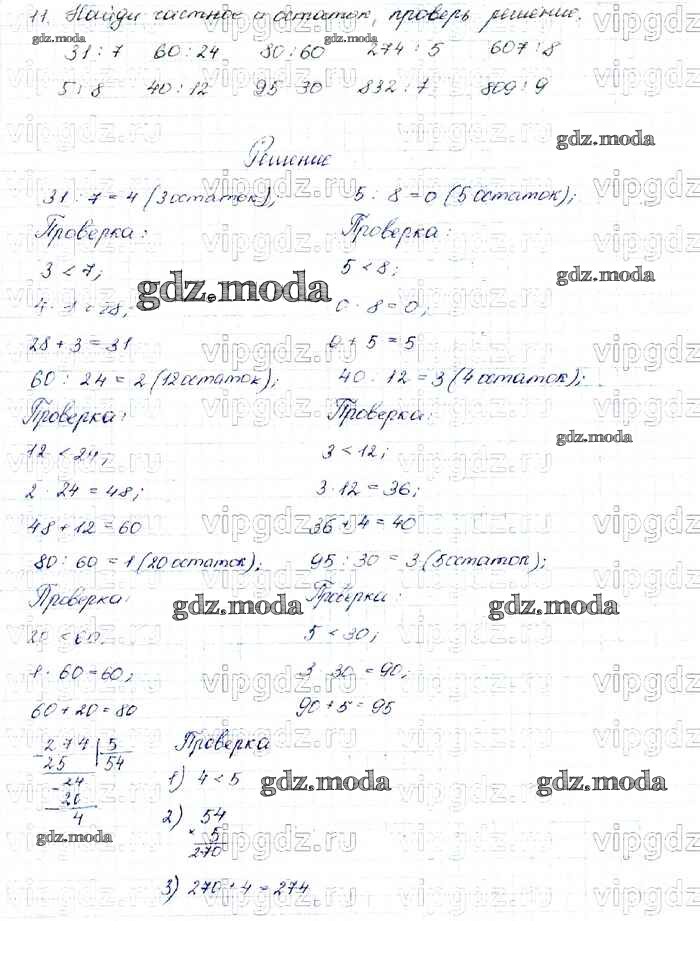 11. Найди частное и остаток, проверь решение.
31 : 7 60 : 24 80 : 60 274 : 5 607 : 8
5 : 8 40 : 12 95 30 832 : 7 809 : 9
gdz.moda
Решение
31 : 7 = 4 (3 остаток); 5 : 8 = 0 (5 остаток);
Проверка: Проверка:
3 < 7; 5 < 8;
gdz.moda gdz.moda
= 28; 0 · 8 = 0;
28 + 3 = 31 0 + 5 = 5
60 : 24 = 2 (12 остаток); 40 : 12 = 3 (4 остаток);
Проверка: Проверка:
gdz.moda
12 < 24; 3 < 12;
2 · 24 = 48; 3 · 12 = 36;
48 + 12 = 60 36 + 4 = 40
80 : 60 = 1 (20 остаток); 95 : 30 = 3 (5 остаток);
Проверка: Проверка:
gdz.moda gdz.moda
20 < 60; 5 < 30;
1 · 60 = 60; 3 · 30 = 90;
60 + 20 = 80 90 + 5 = 95
274 | 5 Проверка
- 25 | 54
- 24 1) 4 < 5
gdz.moda gdz.moda
20
4 2) 54
gdz.moda
× 5
270
3) 270 + 4 = 274
vipgdz.ru